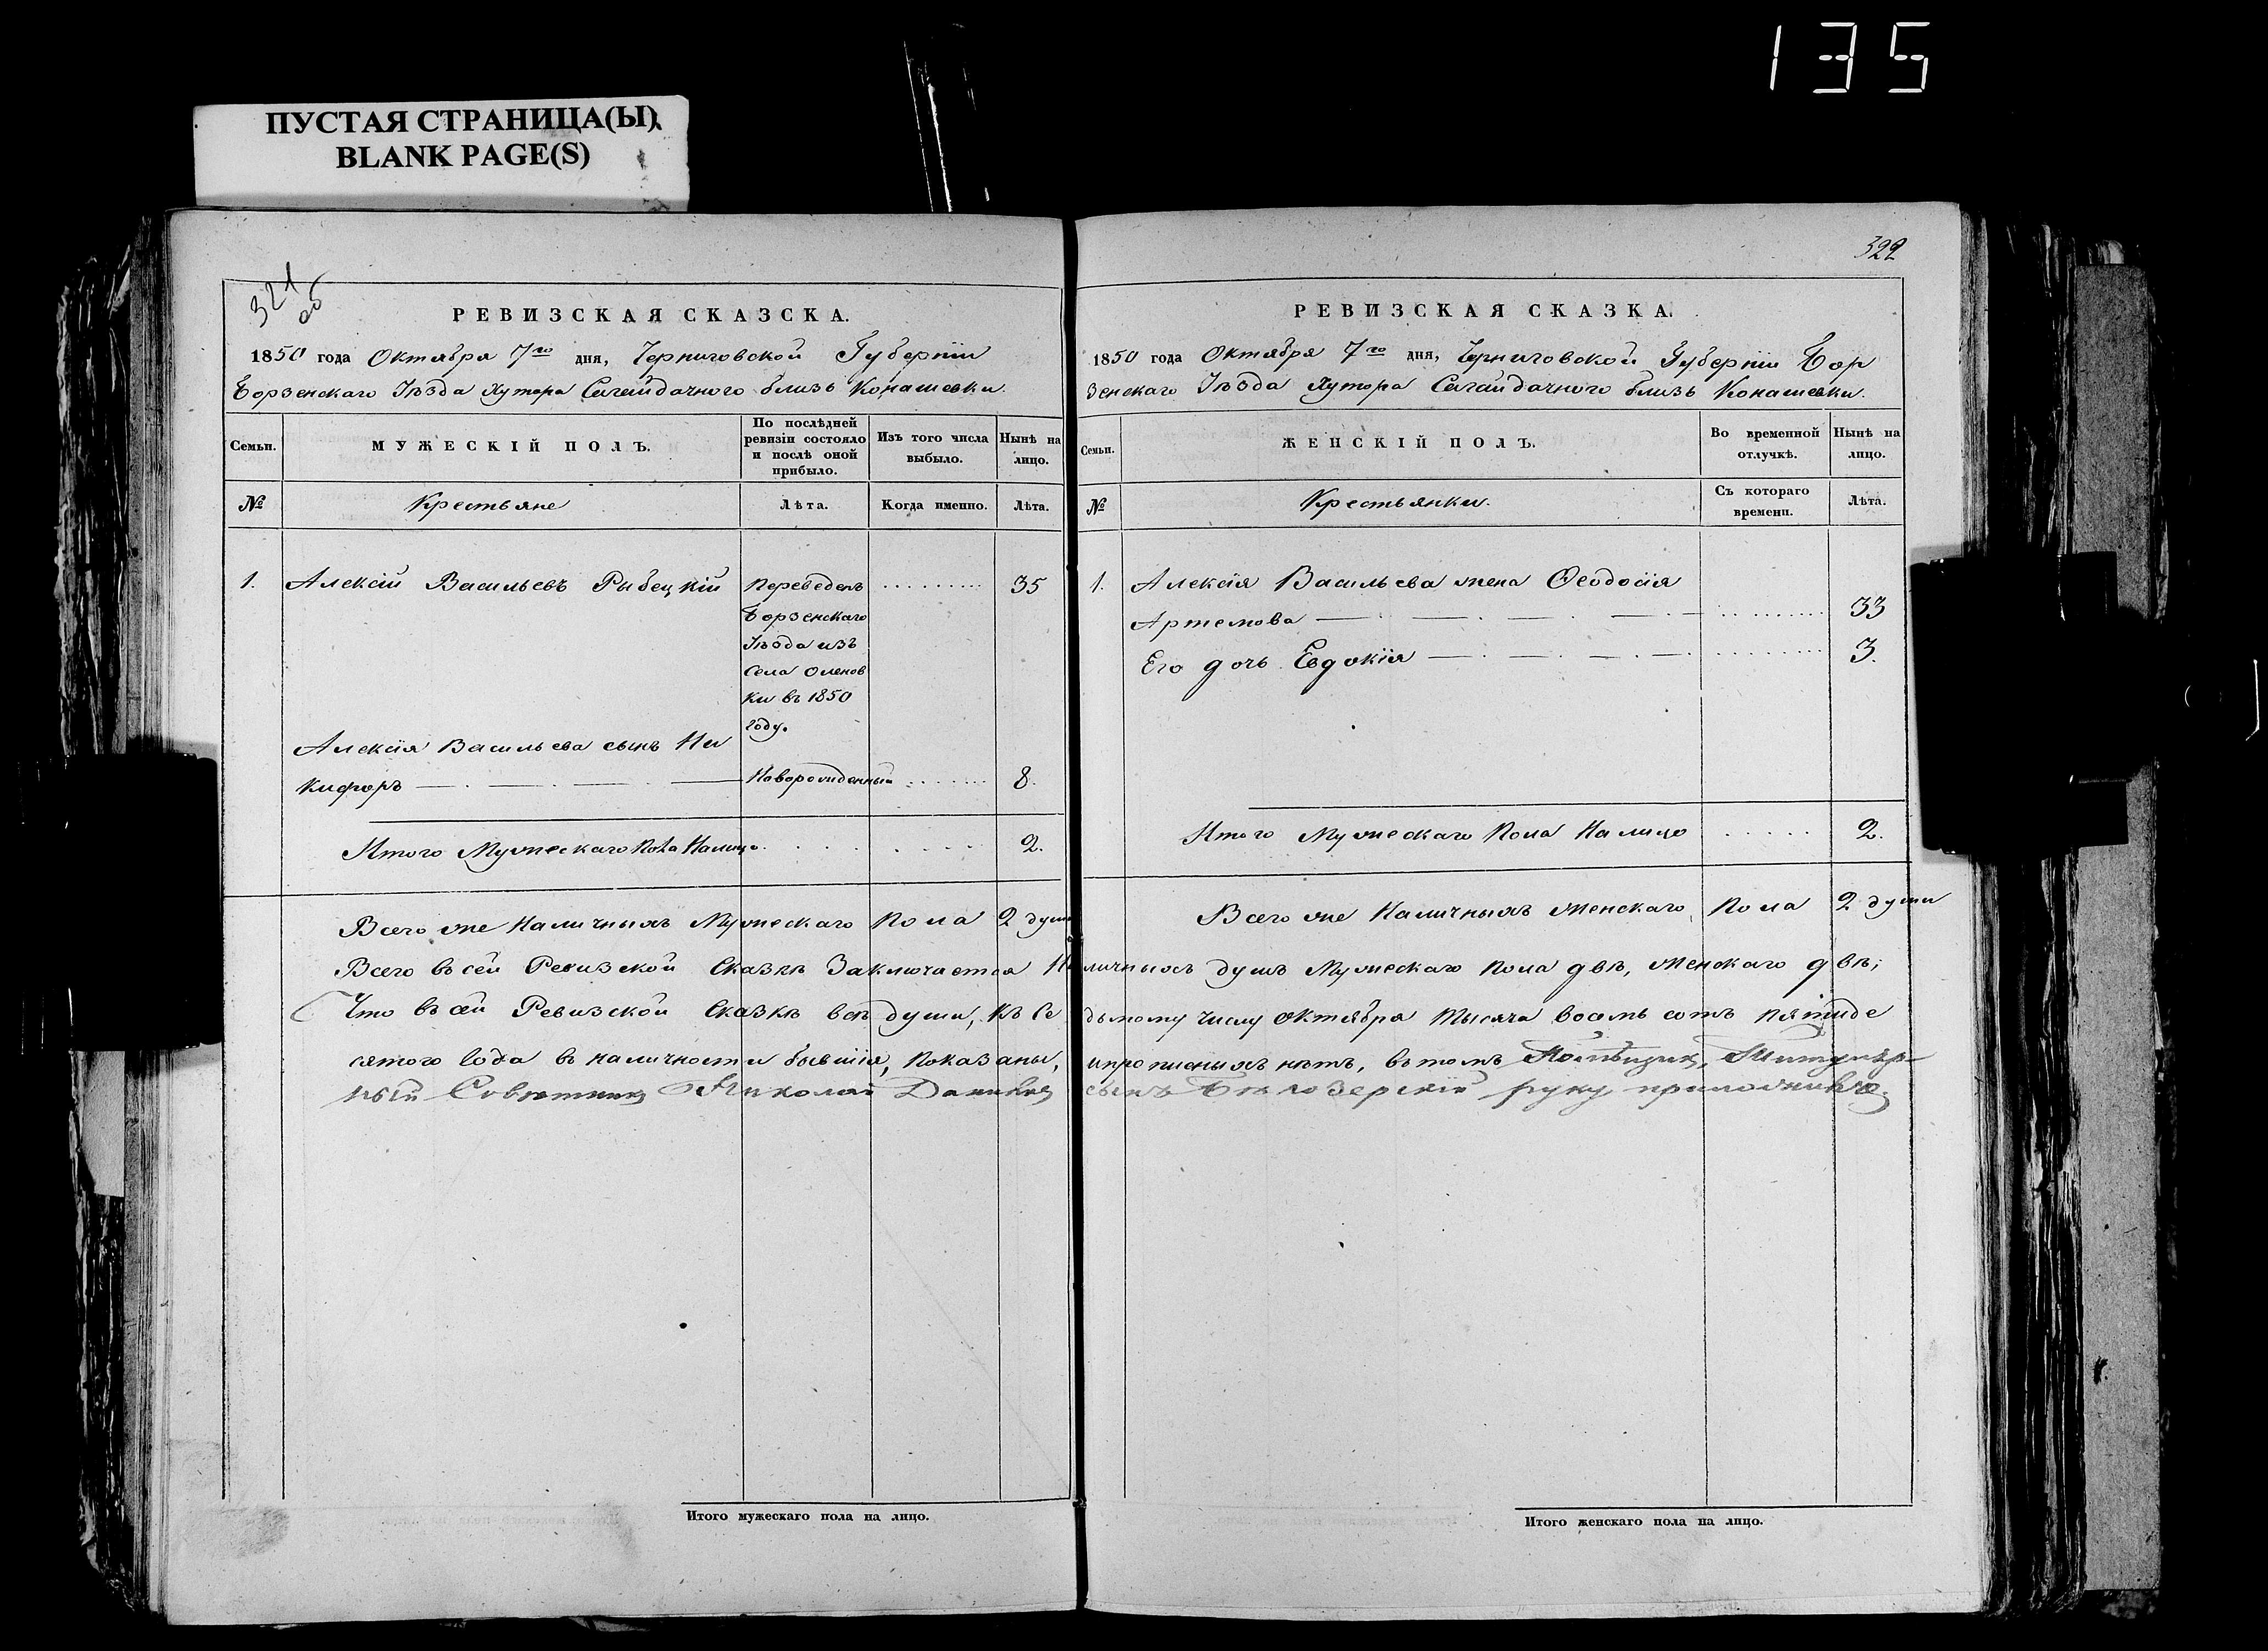 135
ПУСТАЯ СТРАНИЦА(Ы)
BLANK PAGE(S)
321
об
РЕВИЗСКАЯ СКАЗСКА.
1850 года Октября 7го дня, Черниговской Губерніи
Борзенскаго Уѣзда Хутора Сагайдачного близь Конашевки.
Семьи.
МУЖЕСКІЙ ПОЛЪ.
По послѣдней ревизіи состояло и послѣ оной прибыло.
Изъ того числа выбыло.
Нынѣ на лицо.
№
Крестьяне
Лѣта.
Когда именно.
Лѣта.
1. Алексій Васильевъ Рыбецкій
Переведенъ
Борзенскаго
Уѣзда изъ
Села Оленов
ки въ 1850
году.
35
Алексія Васильева сынъ Ни
кифоръ
Новорожденный
8.
Итого Мужескаго Пола Налицо
2.
Всего же Наличныхъ Мужескаго Пола 2 души
Всего въ сей Ревизской Сказкѣ Заключается На
Что въ сей Ревизской Сказкѣ всѣ души, къ Се
сятого Года въ наличности бывшія, показаны,
ный Совѣтникъ Николай Данилов
322
РЕВИЗСКАЯ СКАЗКА.
1850 года Октября 7го дня, Черниговской Губерніи Бор
зенскаго Уѣзда Хутора Сагайдачного близь Конашевки.
Семьи.
ЖЕНСКІЙ ПОЛЪ.
Во временной отлучкѣ.
Нынѣ на лицо.
№
Крестьянки.
Съ котораго времени.
Лѣта.
1. Алексія Васильева жена Ѳеодосія
Артемова
33
Его дочь Евдокія
3.
Итого Мужескаго Пола На лицо
2.
Всего же Наличныхъ Женскаго Пола 2 души
личныхъ душъ Мужескаго пола двѣ, Женскаго двѣ;
дьмому числу Октября Тысяча восемь сотъ пятиде
и прописныхъ нѣтъ, въ томъ Помѣщикъ,
сынъ Бѣлозерскій руку приложилъ
Итого мужескаго пола на лицо.
Итого женскаго пола на лицо.